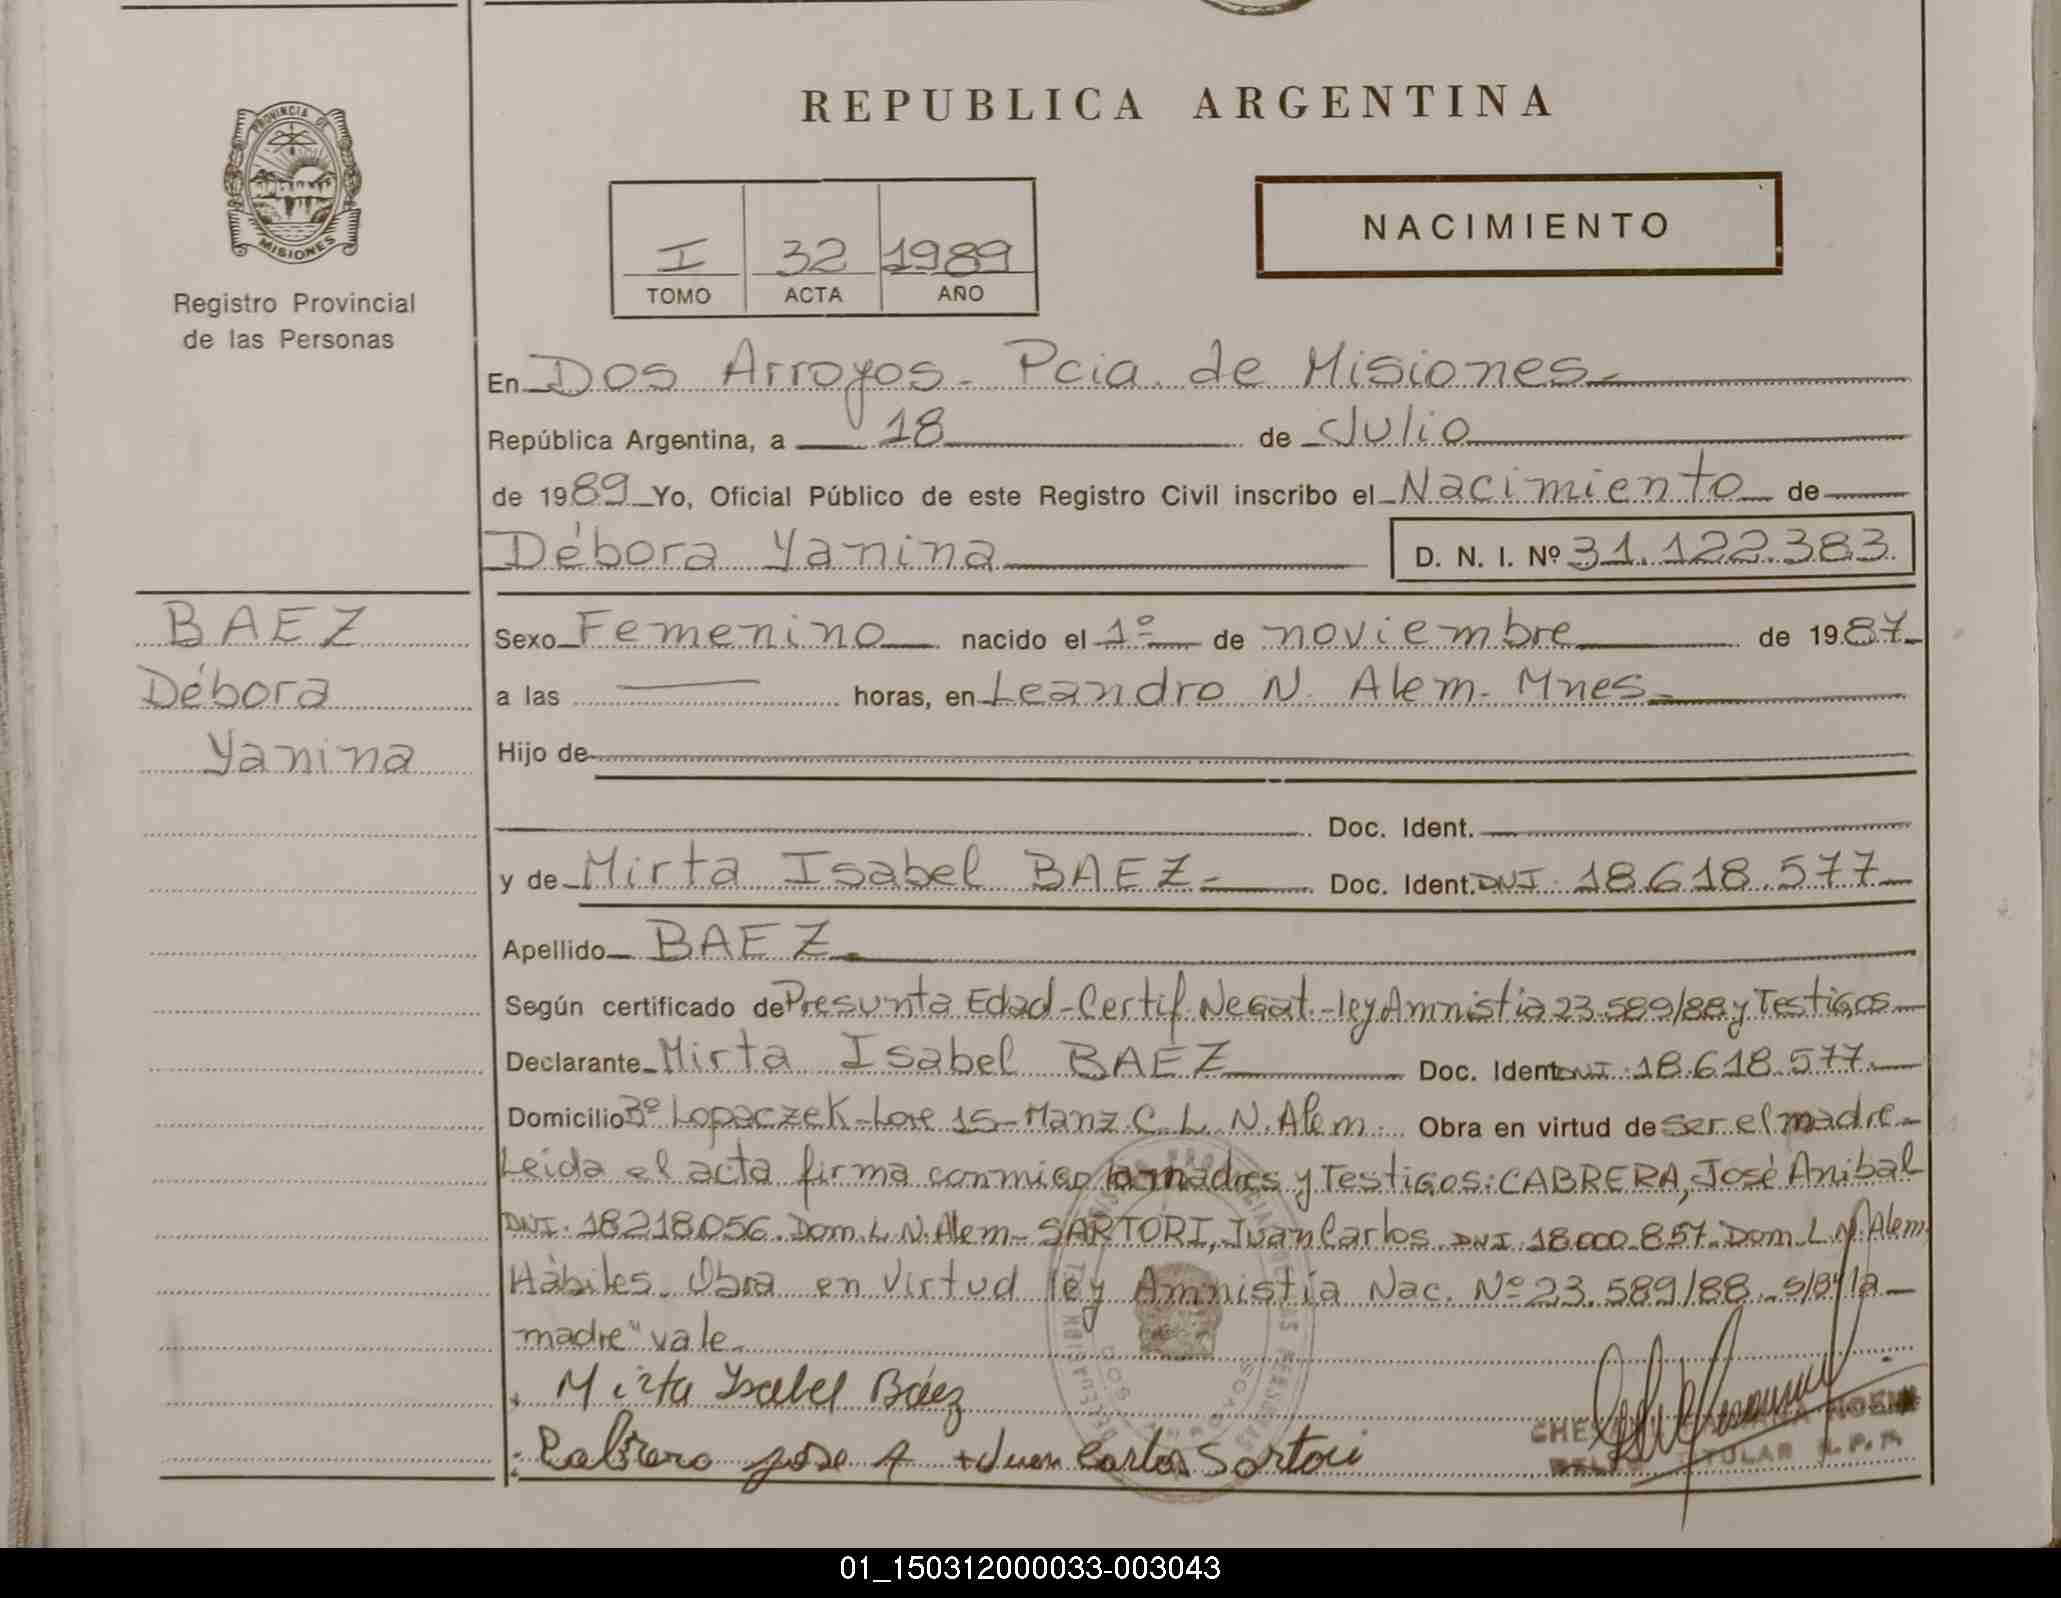 REPUBLICA ARGENTINA
PROVINCIA DE
MISIONES
Registro Provincial
de las Personas
I 32 1989
TOMO ACTA AÑO
NACIMIENTO
En Dos Arroyos - Pcia de Misiones.-
República Argentina, a 18 de Julio
de 1989 Yo, Oficial Público de este Registro Civil inscribo el Nacimiento de
Débora Yanina D. N. I. Nº 31.122.383.
BAEZ
Débora
Yanina
Sexo Femenino nacido el 1º de noviembre de 1987.-
a las — horas, en Leandro N. Alem - Mnes.-
Hijo de
Doc. Ident.
y de Mirta Isabel BAEZ.- Doc. Ident. DNI. 18.618.577.-
Apellido BAEZ.-
Según certificado de Presunta Edad - Certif. Negat.- ley Amnistia 23.589/88 y Testigos.-
Declarante Mirta Isabel BAEZ Doc. Ident DNI. 18.618.577.-
Domicilio Bº Lopaczek - Lote 15 - Manz. C. L. N. Alem. Obra en virtud de ser el madre.-
Leida el acta firma conmigo la madres y Testigos: CABRERA, José Anibal
DNI. 18218.056. Dom. L. N. Alem - SARTORI, Juan Carlos DNI. 18.000.857. Dom. L. N. Alem
Hábiles. Obra en Virtud ley Amnistía Nac. Nº 23.589/88. s/b "la
madre" vale.-
Mirta Isabel Báez
Cabrera Jose A + Juan Carlos Sartori
TITULAR R.P.P.
01_150312000033-003043